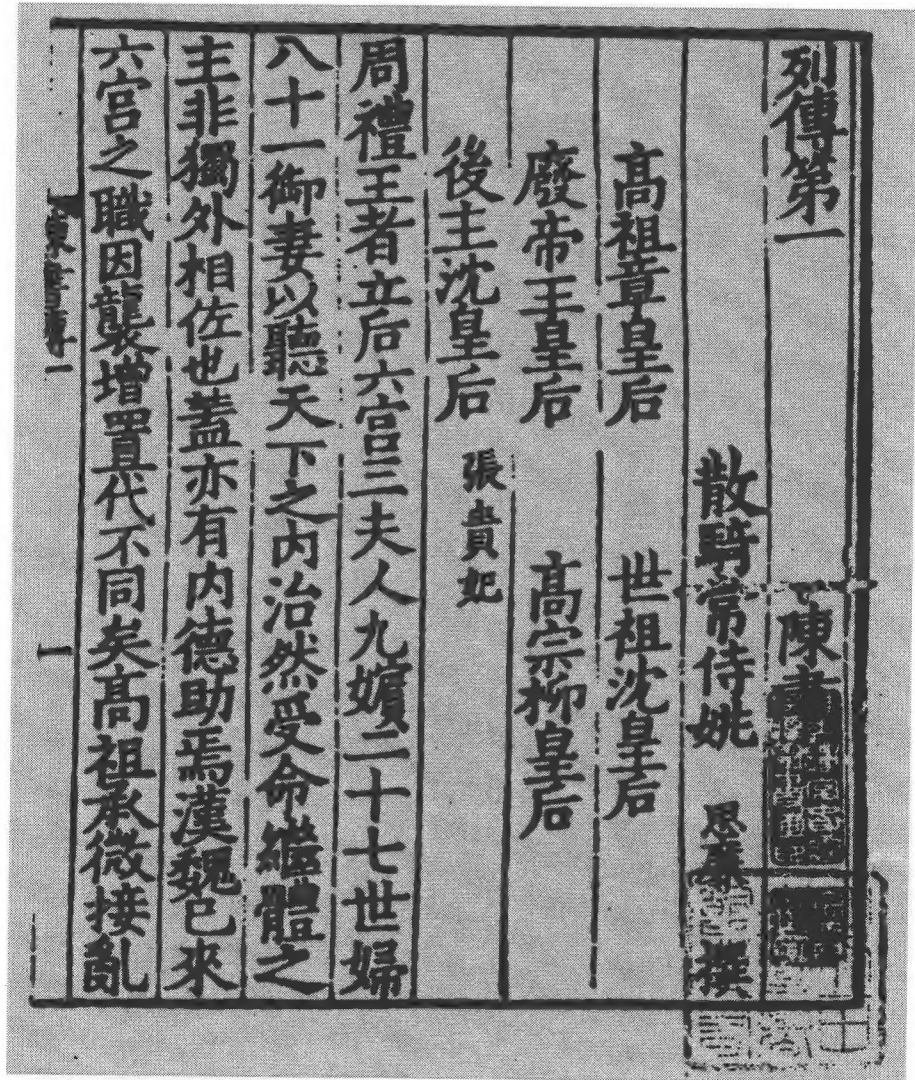 列傳第一 陳書
散騎常侍姚 思廉 撰
高祖章皇后 世祖沈皇后
廢帝王皇后 高宗柳皇后
後主沈皇后 張貴妃
周禮王者立后六宮三夫人九嬪二十七世婦
八十一御妻以聽天下之內治然受命繼體之
主非獨外相佐也蓋亦有內德助焉漢魏已來
六宮之職因襲增置代不同矣高祖承微接亂
一